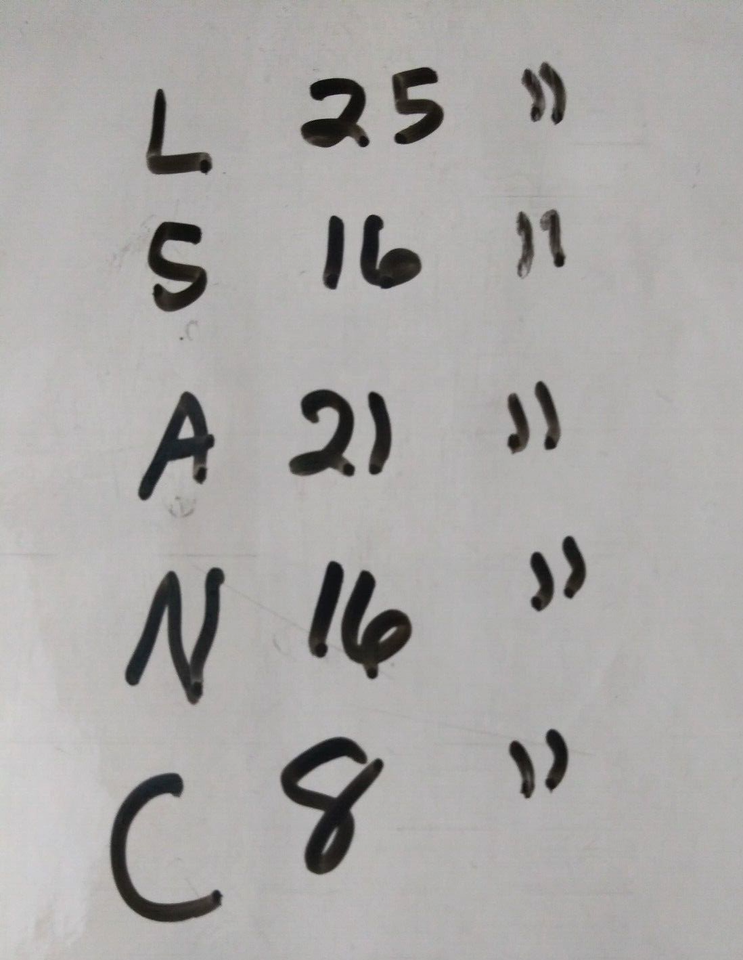 L 25 "
S 16 "
A 21 "
N 16 "
C 8 "